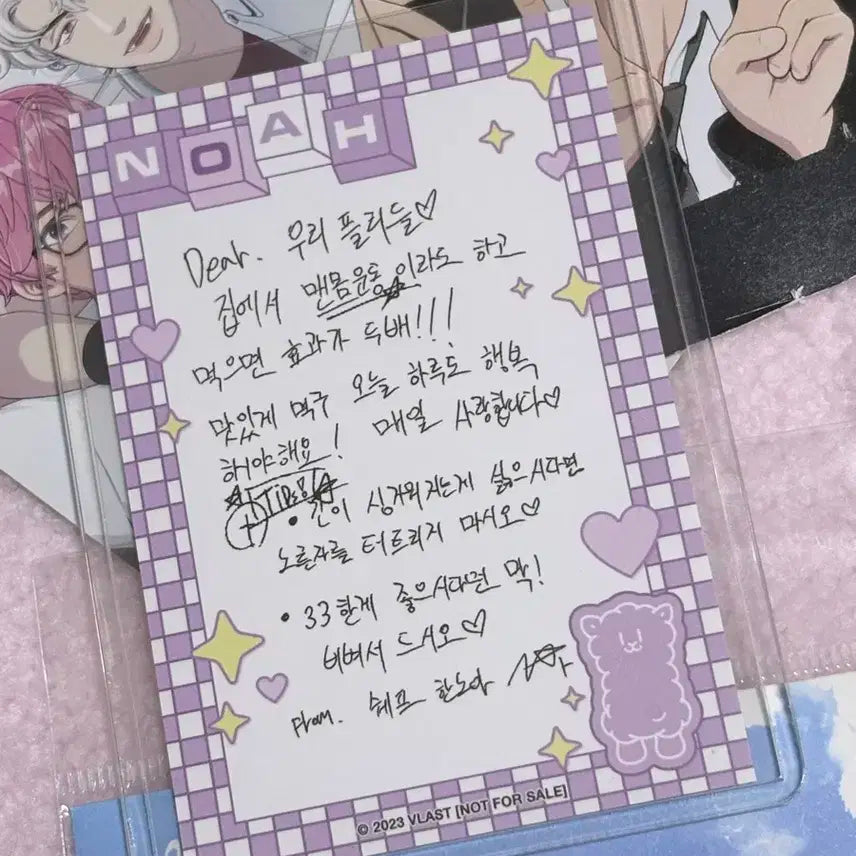 NOAH
Dear. 우리 플리들♡
집에서 맨몸운동이라도 하고
먹으면 효과가 두배!!!
맛있게 먹구 오늘 하루도 행복
해야해요! 매일 사랑합니다♡
TIP
• 간이 싱거워지는게 싫으시다면
노른자를 터트리지 마시오♡
• 꾸덕한게 좋으시다면 막!
비벼서 드시오♡
From. 쉐프 한노아
© 2023 VLAST [NOT FOR SALE]